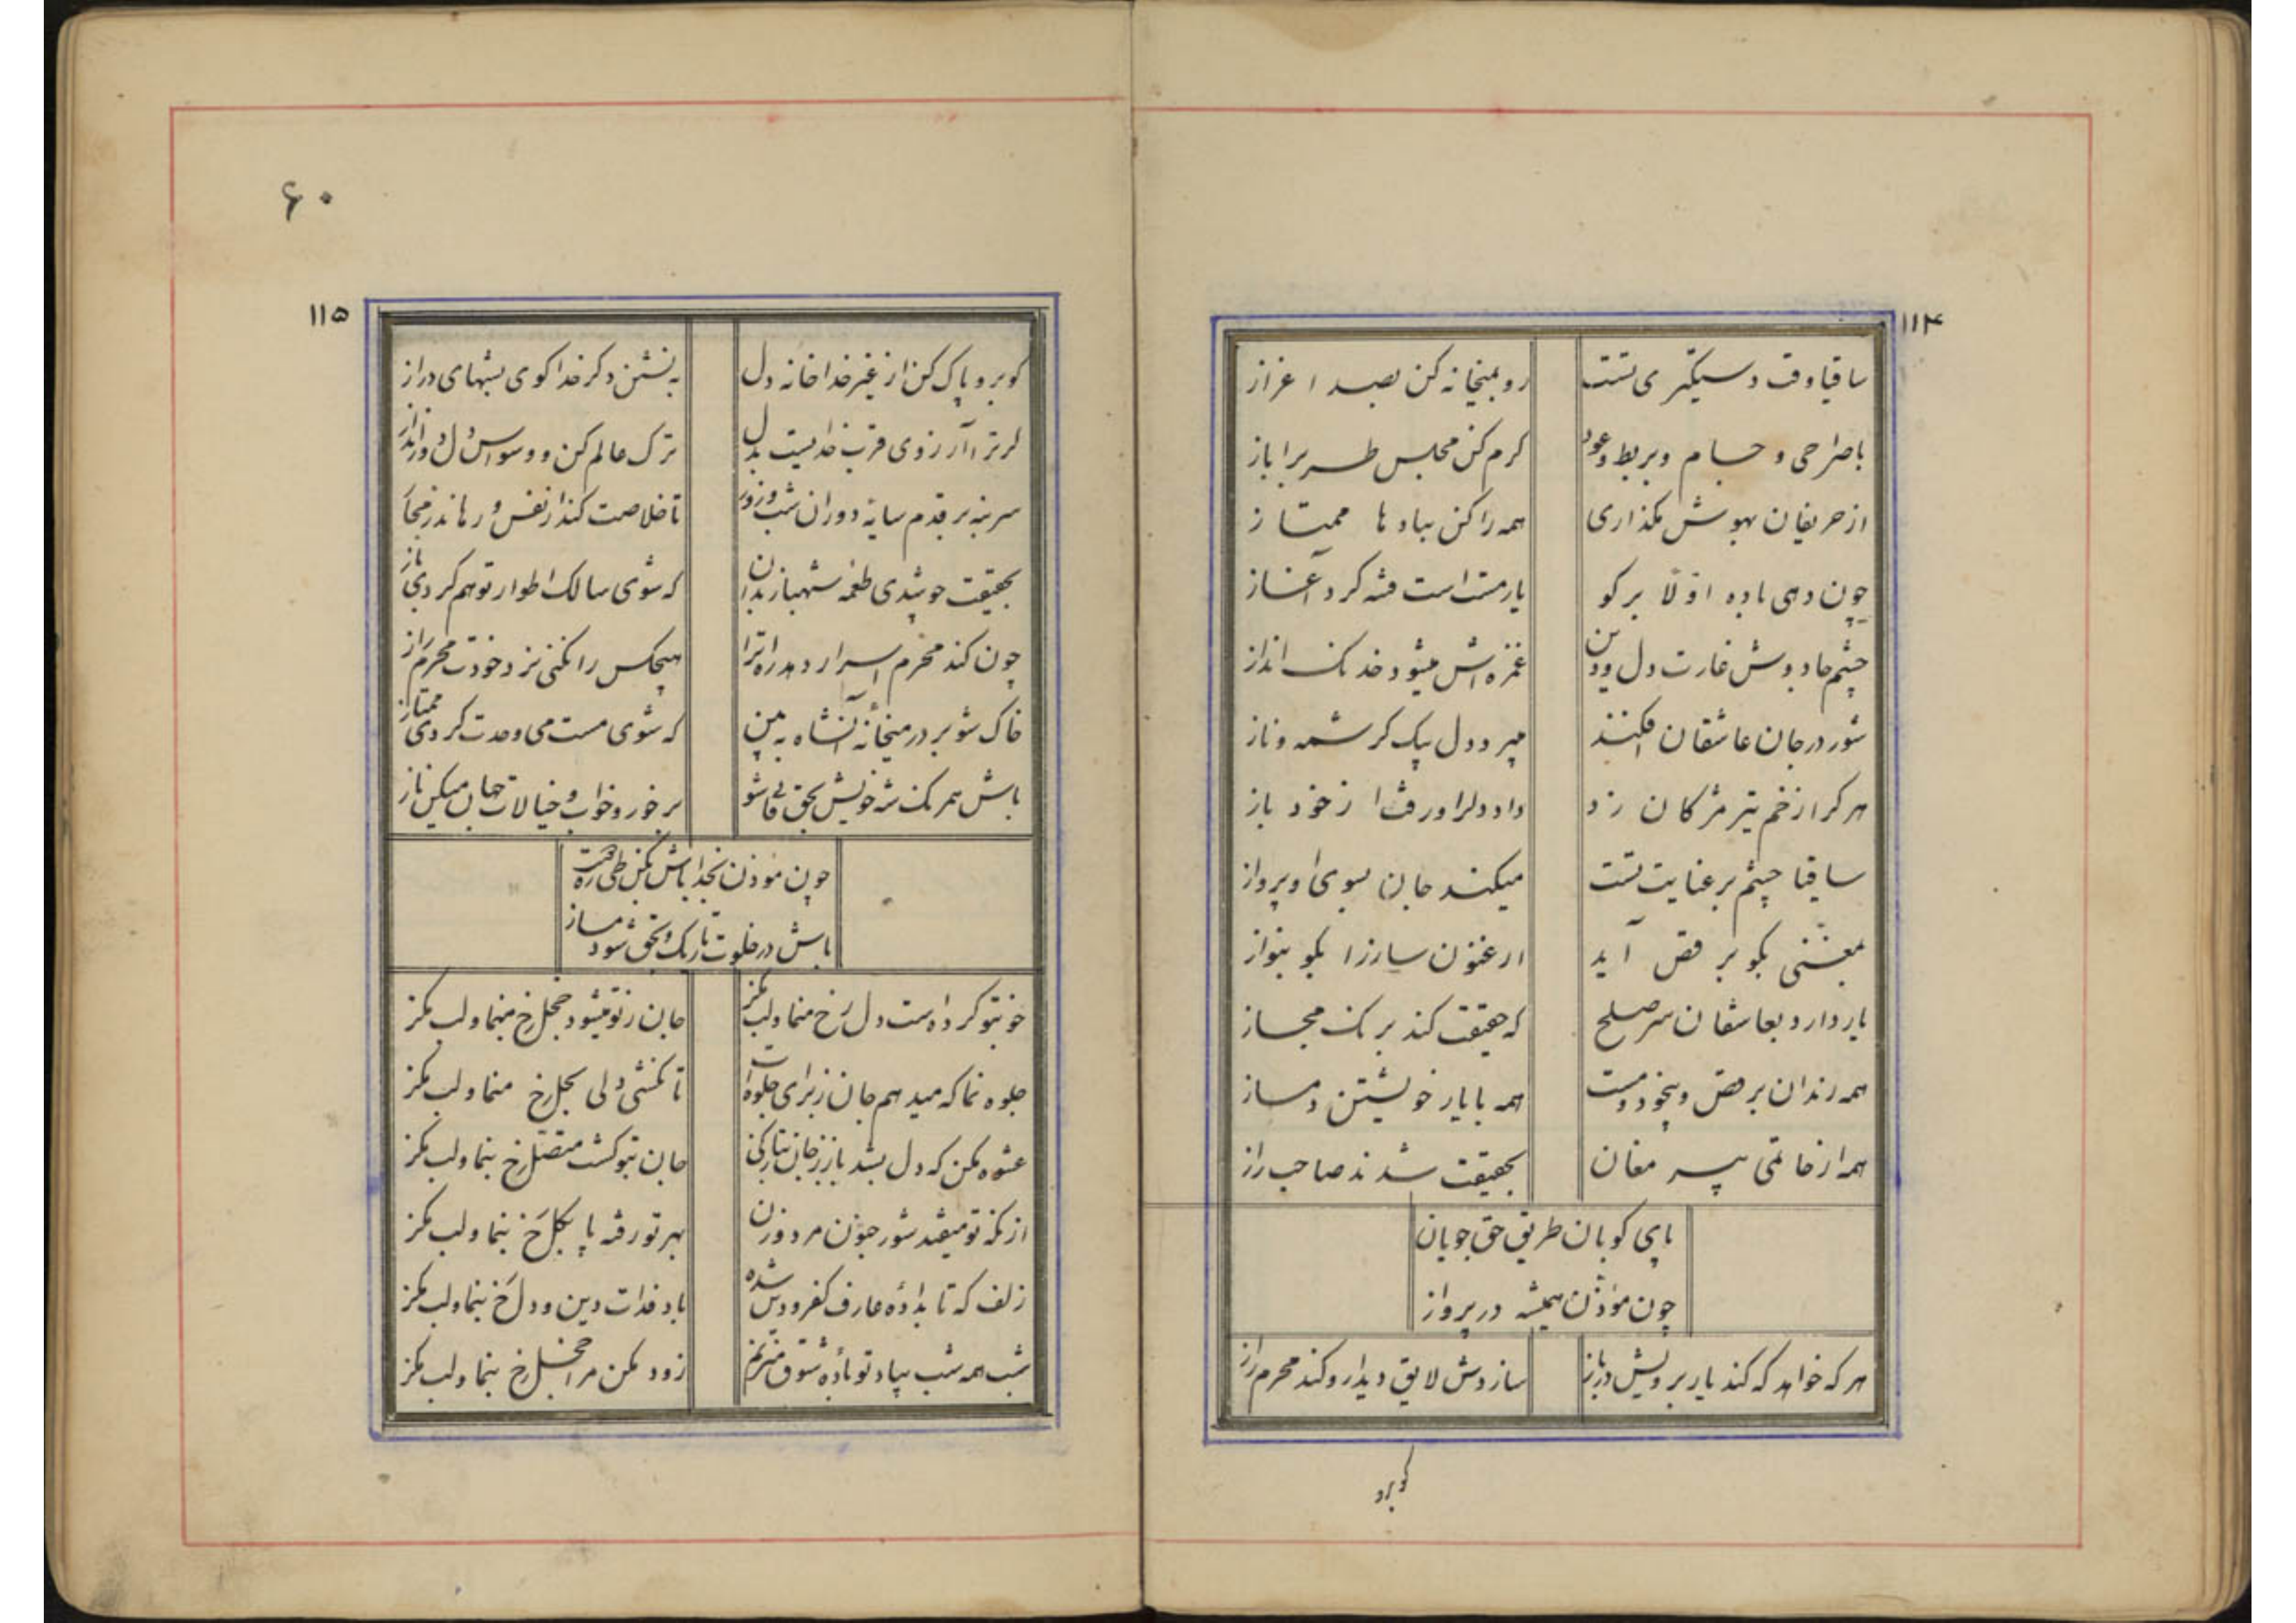 ۱۱۴
ساقیا وقت دستگیری تست
رو بمیخانه کن بصد اعزاز
با صراحی و جام و بربط و عود
گرم کن مجلس طرب را باز
از حریفان بهوش مگذاری
همه را کن بباده ها ممتاز
چون دهی باده اولا برگو
یار مست است فتنه کرد آغاز
چشم جادوش غارت دل و دین
غمزه اش میشود خدنگ انداز
شور در جان عاشقان افکند
میبرد دل بیک کرشمه و ناز
هر کرا زخم تیر مژگان زد
داد دل را و رفت از خود باز
ساقیا چشم بر عنایت تست
میکند جان بسوی او پرواز
بمغنی بگو برقص آید
ارغنون ساز را بگو بنواز
یار دارد بعاشقان سر صلح
که حقیقت کند برنگ مجاز
همه رندان برقص و بیخود و مست
همه با یار خویشتن دمساز
همه از خادمی پیر مغان
بحقیقت شدند صاحب راز
پای کوبان طریق حق جویان
چون موذن همیشه در پرواز
هر که خواهد که کند یار برویش در باز
سازدش لایق دیدار و کند محرم راز
گو برو
۶۰
۱۱۵
گو برو پاک کن از غیر خدا خانه دل
بنشین ذکر خدا گوی بشبهای دراز
گر ترا آرزوی قرب خدائیست بدل
ترک عالم کن و وسواس دل دور انداز
سر بنه بر قدم سایه دوران شب و روز
تا خلاصت کند از نفس و رهاند ز مجاز
بحقیقت چو شدی طعمه شهباز بدان
که شوی سالک اطوار تو هم گردی باز
چون کند محرم اسرار دهد راه ترا
هیچکس را نکنی نزد خودت محرم راز
خاک شو بر در میخانه آنشاه به بین
که شوی مست می وحدت گردی ممتاز
باش همرنگ شه خویش بحق فانی شو
بر خور و خواب و خیالات جهان میکن ناز
چون موذن بخدا باش بکن طی رهت
باش در خلوت تاریک و بحق شو دمساز
خو بتو کرده است دل رخ منما و لب مگز
جان ز تو میشود خجل رخ منما و لب مگز
جلوه نما که میدهم جان ز برای جلوه ات
تا نکشی دلی بحل رخ منما و لب مگز
عشوه مکن که دل بشد باز ز جان بتارکی
جان بتو گشت متصل رخ بنما و لب مگز
از نگه تو میفتد شور جنون مرد و زن
بهر تو رفته پا بگل رخ بنما و لب مگز
زلف که تاب داده عارف کفر و دین شده
باد فدات دین و دل رخ بنما و لب مگز
شب همه شب بیاد تو باده شوق میزنم
زود مکن مرا خجل رخ بنما و لب مگز